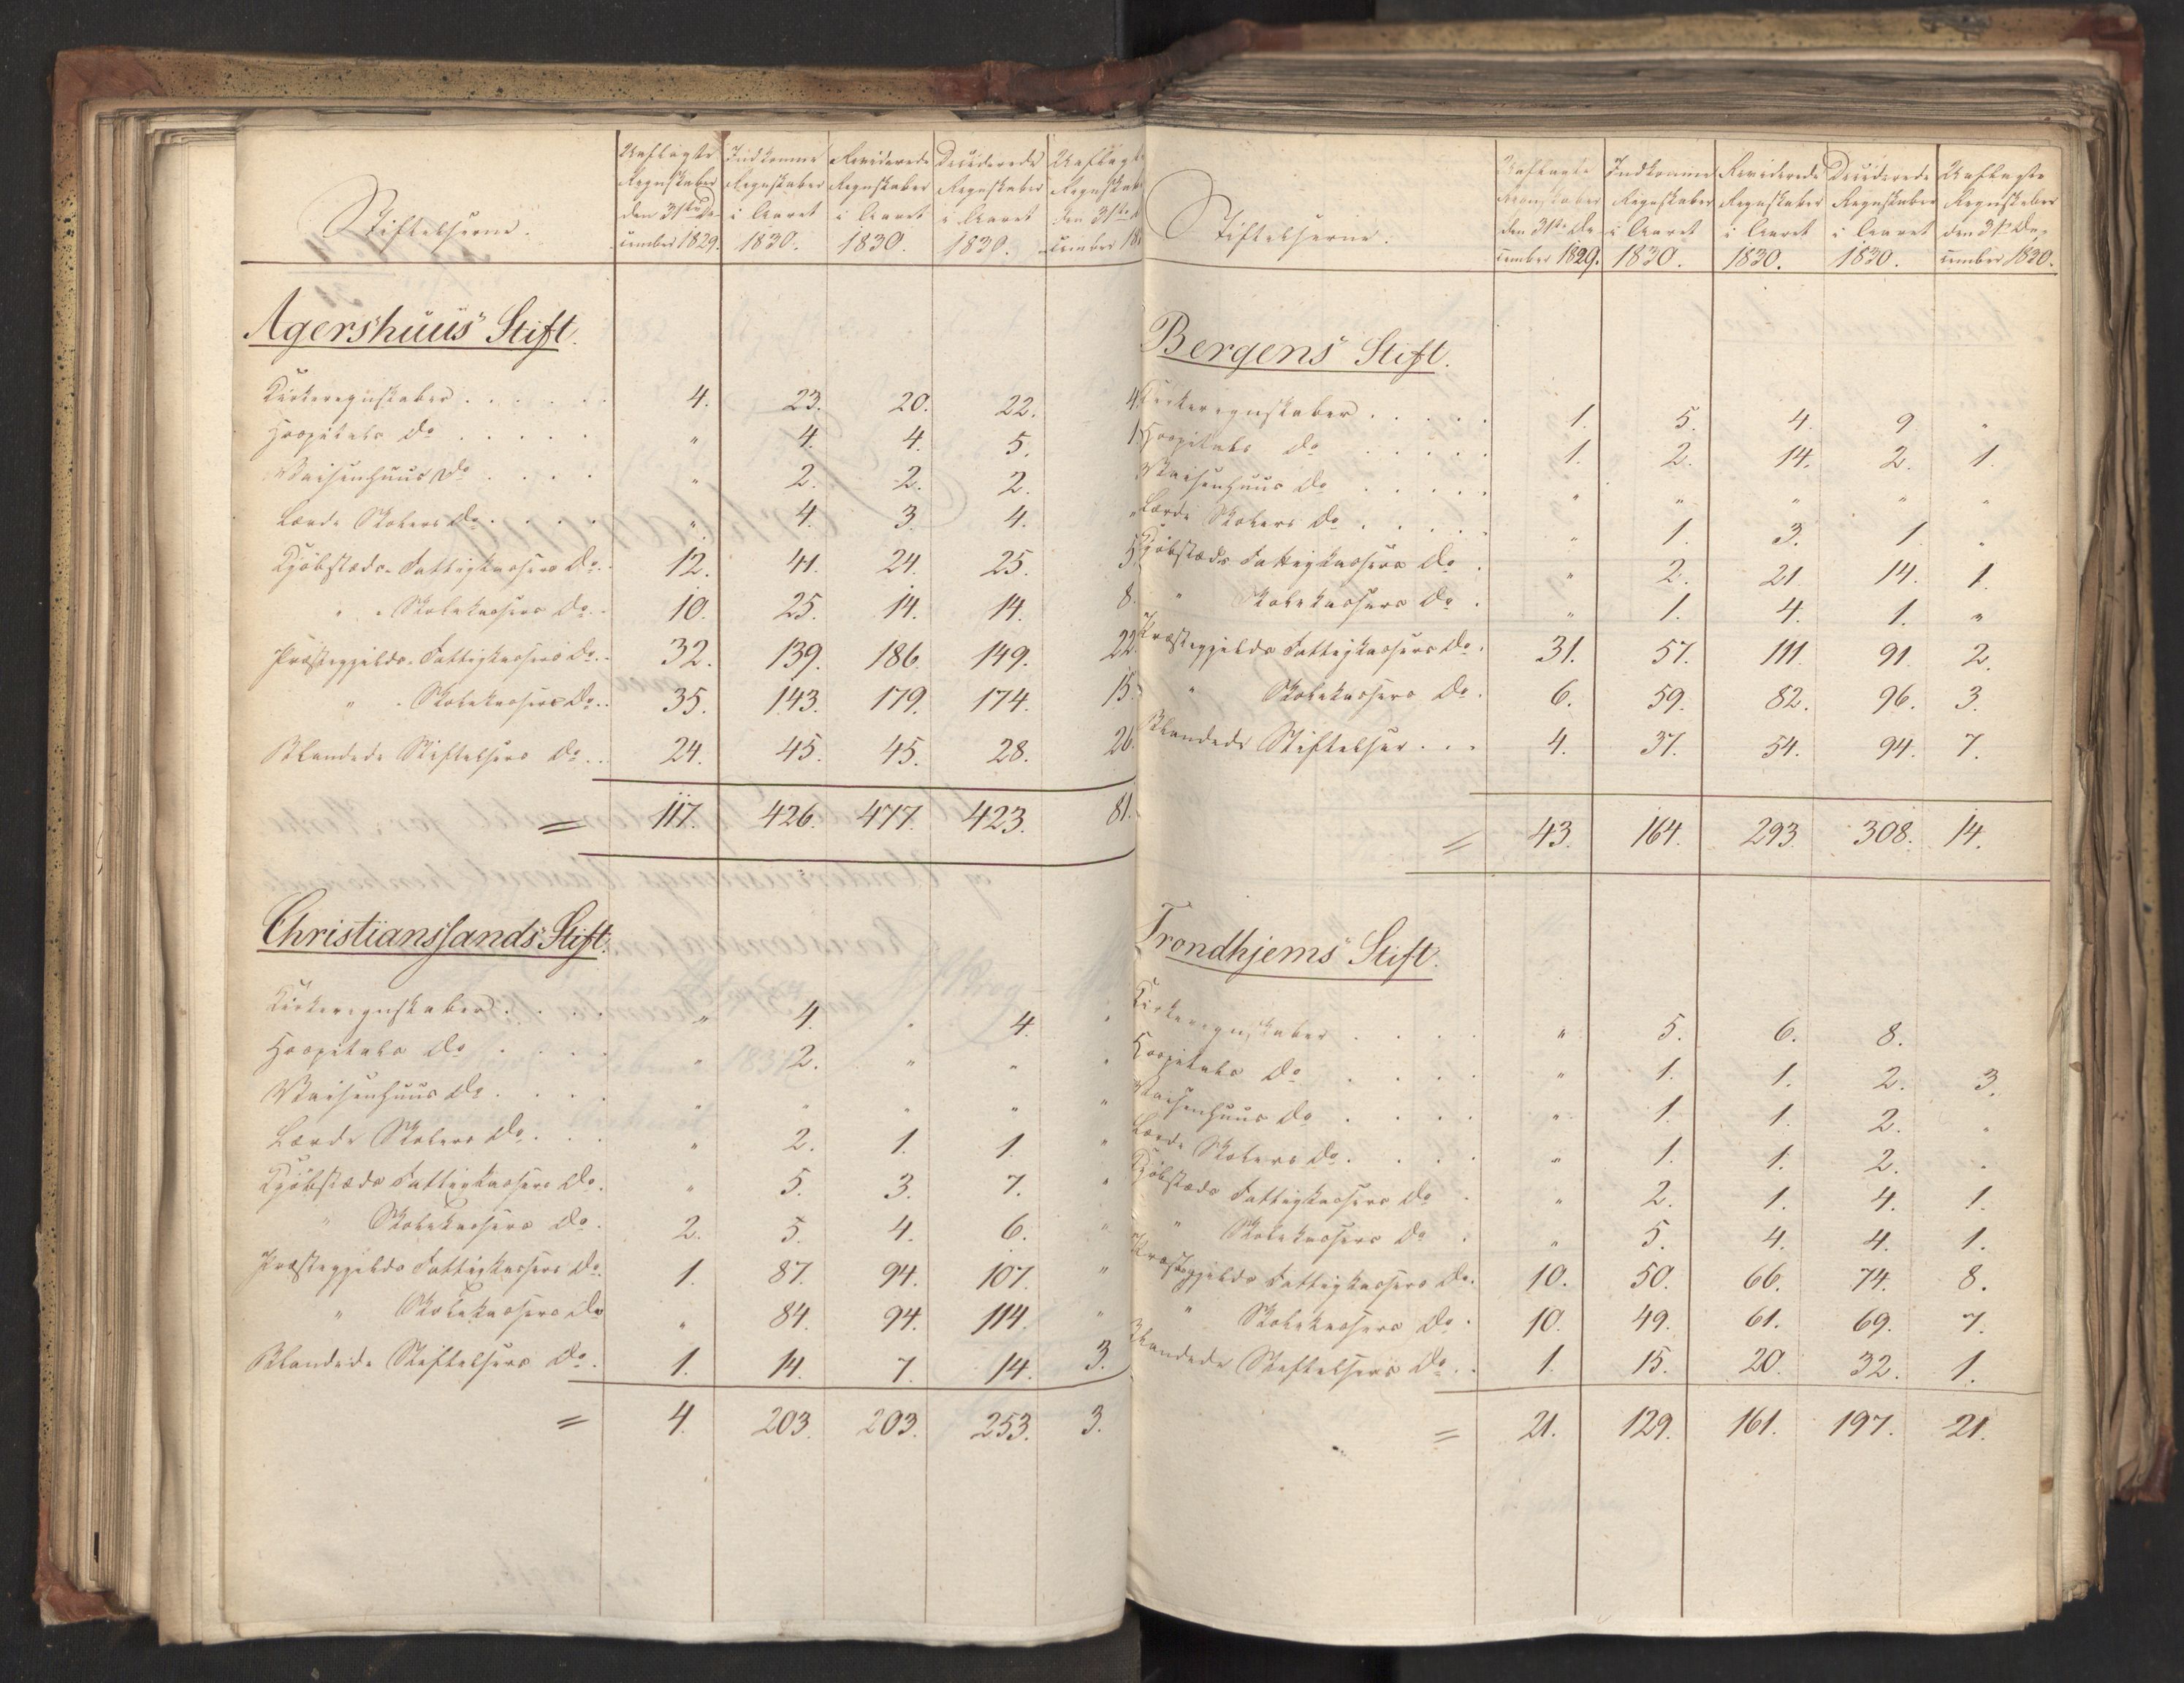 Stiftelserne.
Uaflagte Regnskaber den 31te De- cember 1829.
Indkomne Regnskaber i Aaret 1830.
Reviderede Regnskaber i Aaret 1830.
Deciderede Regnskaber i Aaret 1830.
Uaflagte Regnskab den 31te cember 18
Agershuus Stift.
Kirkeregnskaber . . . . . . 4. 23. 20. 22. 4.
Hospitals do . . . . . " 4. 4. 5. 1.
Vaisenhuus do . . . . " 2. 2. 2.
Lærde Skolers do . . . . " 4. 3. 4. "
Kjöbstæds-Fattigkassers do. . 12. 41. 24. 25. 5.
" " Skolekassers do. . 10. 25. 14. 14. 8.
Præstegjelds-Fattigkassers do. . 32. 139. 186. 149. 22.
" " Skolekassers do. . 35. 143. 179. 174. 15.
Blandede Stiftelsers do . . 24. 45. 45. 28. 26.
= 117. 426. 477. 423. 81.
Christianssands Stift.
Kirkeregnskaber . . . . " 4. " 4. "
Hospitals do . . . . " 2. " " "
Vaisenhuus do . . . . " " " " "
Lærde Skolers do . . . " 2. 1. 1. "
Kjöbstæds Fattigkassers do. " 5. 3. 7. "
" Skolekassers do. 2. 5. 4. 6. "
Præstegjelds Fattigkassers do. 1. 87. 94. 107. "
" Skolekassers do " 84. 94. 114. "
Blandede Stiftelsers do. 1. 14. 7. 14. 3.
= 4. 203. 203. 253. 3.
Stiftelserne.
Uaflagte Regnskaber den 31te De- cember 1829.
Indkomne Regnskaber i Aaret 1830.
Reviderede Regnskaber i Aaret 1830.
Deciderede Regnskaber i Aaret 1830.
Uaflagte Regnskaber den 31te De- cember 1830.
Bergens Stift.
Kirkeregnskaber . . . . . 1. 5. 4. 9 "
Hospitals do . . . . . 1. 2. 14. 2. 1.
Vaisenhuus do . . . . . " " " " "
Lærde Skolers do . . . . . " 1. 3. 1. "
Kjöbstæds Fattigkassers do . " 2. 21. 14. 1.
" Skolekassers do . " 1. 4. 1. "
Præstegjelds Fattigkassers do . 31. 57. 111. 91. 2.
" Skolekassers do . 6. 59. 82. 96. 3.
Blandede Stiftelser . . . 4. 37. 54. 94. 7.
= 43. 164. 293. 308. 14.
Trondhjems Stift.
Kirkeregnskaber . . . . " 5. 6. 8.
Hospitals do . . . . " 1. 1. 2. 3.
Vaisenhuus do . . . . " 1. 1. 2. "
Lærde Skolers do . . . . " 1. 1. 2. "
Kjöbstæds Fattigkassers do . " 2. 1. 4. 1.
" Skolekassers do . " 5. 4. 4. 1.
Præstegjelds Fattigkassers do. 10. 50. 66. 74. 8.
" Skolekassers do . 10. 49. 61. 69. 7.
Blandede Stiftelsers do . . 1. 15. 20. 32. 1.
= 21. 129. 161. 197. 21.